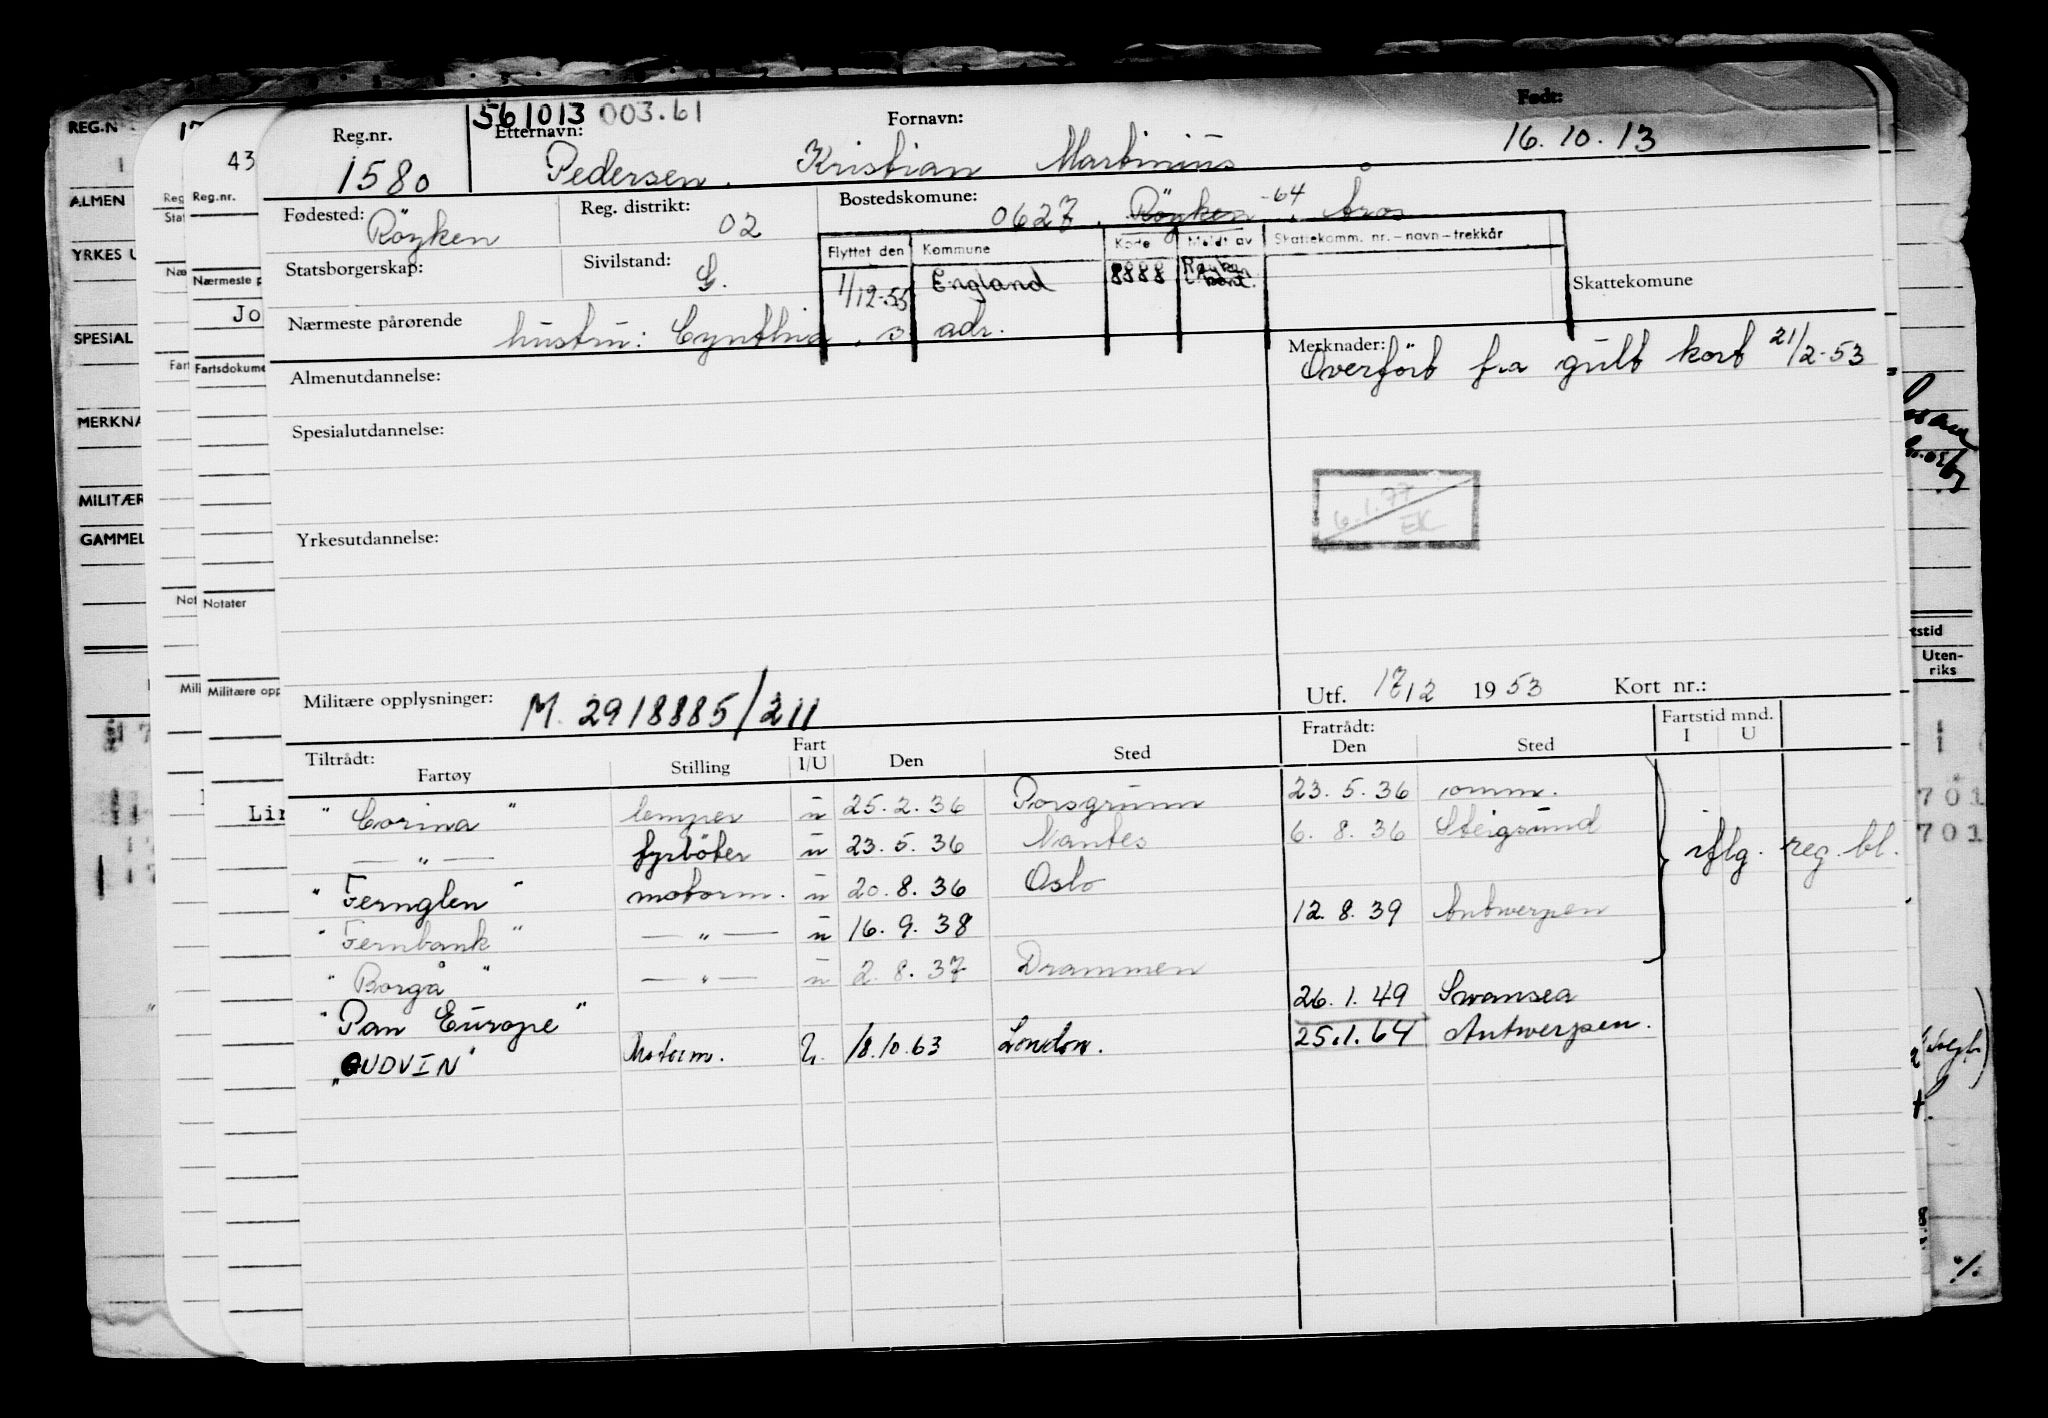 561013 003.61
Reg.nr. Etternavn: Fornavn: Født:
1580 Pedersen. Kristian Martinius 16.10.13
Fødested: Reg. distrikt: Bostedskomune:
Röyken 02 0627. Röyken -64. Åros
Statsborgerskap: Sivilstand: G.
Flyttet den Kommune Kode Meldt av Skattekomm. nr.-navn-trekkår
1/12-55 England 8888
Skattekomune
Nærmeste pårørende hustru: Cynthia. s. adr.
Merknader: Overfört fra gult kort 21/2-53
Almenutdannelse:
Spesialutdannelse:
6.1.77
EK
Yrkesutdannelse:
Militære opplysninger: M. 2918885/211
Utf. 17/2 1953 Kort nr.:
Tiltrådt: Fratrådt: Fartstid mnd.
Fartøy Stilling Fart I/U Den Sted Den Sted I U
"Corina" lemper u 25.2.36 Porsgrunn 23.5.36 omm.
— " — fyrböter u 23.5.36 Nantes 6.8.36 Steigsund
iflg. reg. bl.
"Fernglen" motorm. u 20.8.36 Oslo
"Fernbank" — " — u 16.9.38 12.8.39 Antwerpen
"Borgå" — " — u 2.8.37 Drammen
"Pan Europe" 26.1.49 Swansea
"GUDVIN" Motorm. U. 18.10.63 London. 25.1.64 Antwerpen.
REG.N
ALMEN
YRKES U
SPESIAL
MERKNA
MILITÆR
GAMMEL
43
Reg.nr.
Nærmeste p
Jo
Fartsdokume
Notater
Militære opp
Lin
tstid
Uten-
riks
701
701